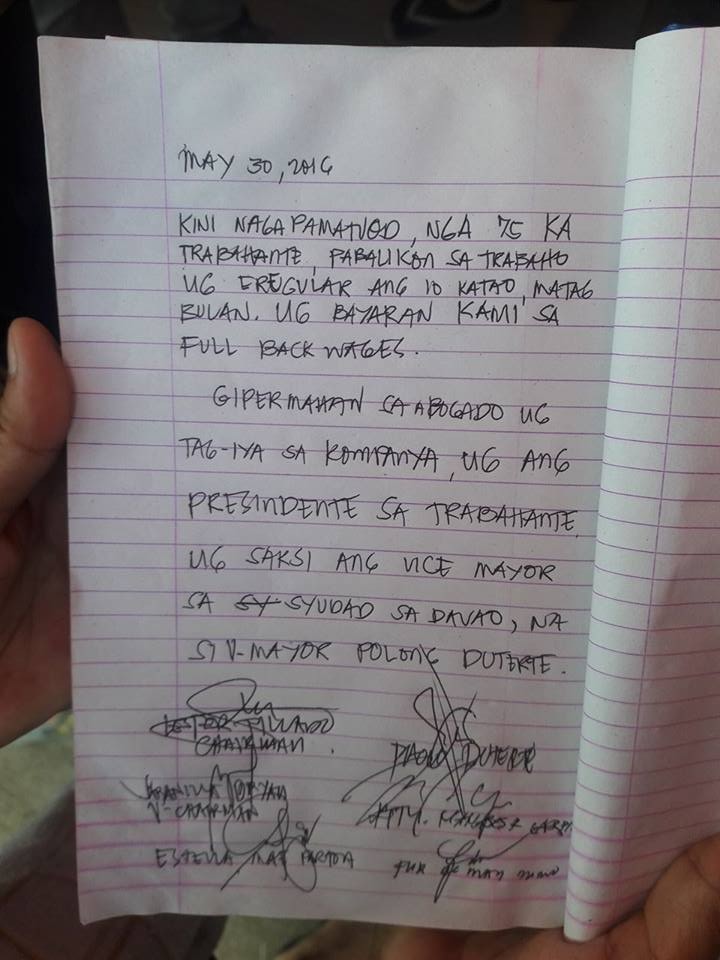 MAY 30, 2016
KINI NAGAPAMATUOD, NGA 75 KA
TRABAHANTE, PABALIKON SA TRABAHO
UG EREGULAR ANG 10 KATAO, MATAG
BULAN. UG BAYARAN KAMI SA
FULL BACK WAGES.
GIPERMAHAN SA ABOGADO UG
TAG-IYA SA KOMPANYA, UG ANG
PRESINDENTE SA TRABAHANTE.
UG SAKSI ANG VICE MAYOR
SA SY SYUDAD SA DAVAO, NA
SI V-MAYOR POLONG DUTERTE.
CHAIRMAN.
PAOLO DUTERTE
V-CHAIRMAN
ATTY.
ESTELLA